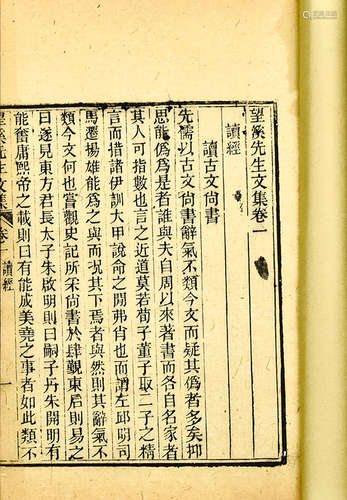 望溪先生文集卷一
讀經
讀古文尚書
先儒以古文尚書辭氣不類今文而疑其僞者多矣抑
思能僞爲是者誰與夫自周以來著書而各自名家者
其人可指數也言之近道莫若荀子董子取二子之精
言而措諸伊訓大甲說命之閒弗肖也而謂左邱明司
馬遷揚雄能爲之與而況其下焉者與然則其辭氣不
類今文何也嘗觀史記所采尚書於肆覲東后則易之
曰遂見東方君長太子朱啟明則曰嗣子丹朱開明有
能奮庸熙帝之載則曰有能成美堯之事者如此類不
望溪先生文集
卷一
讀經
一